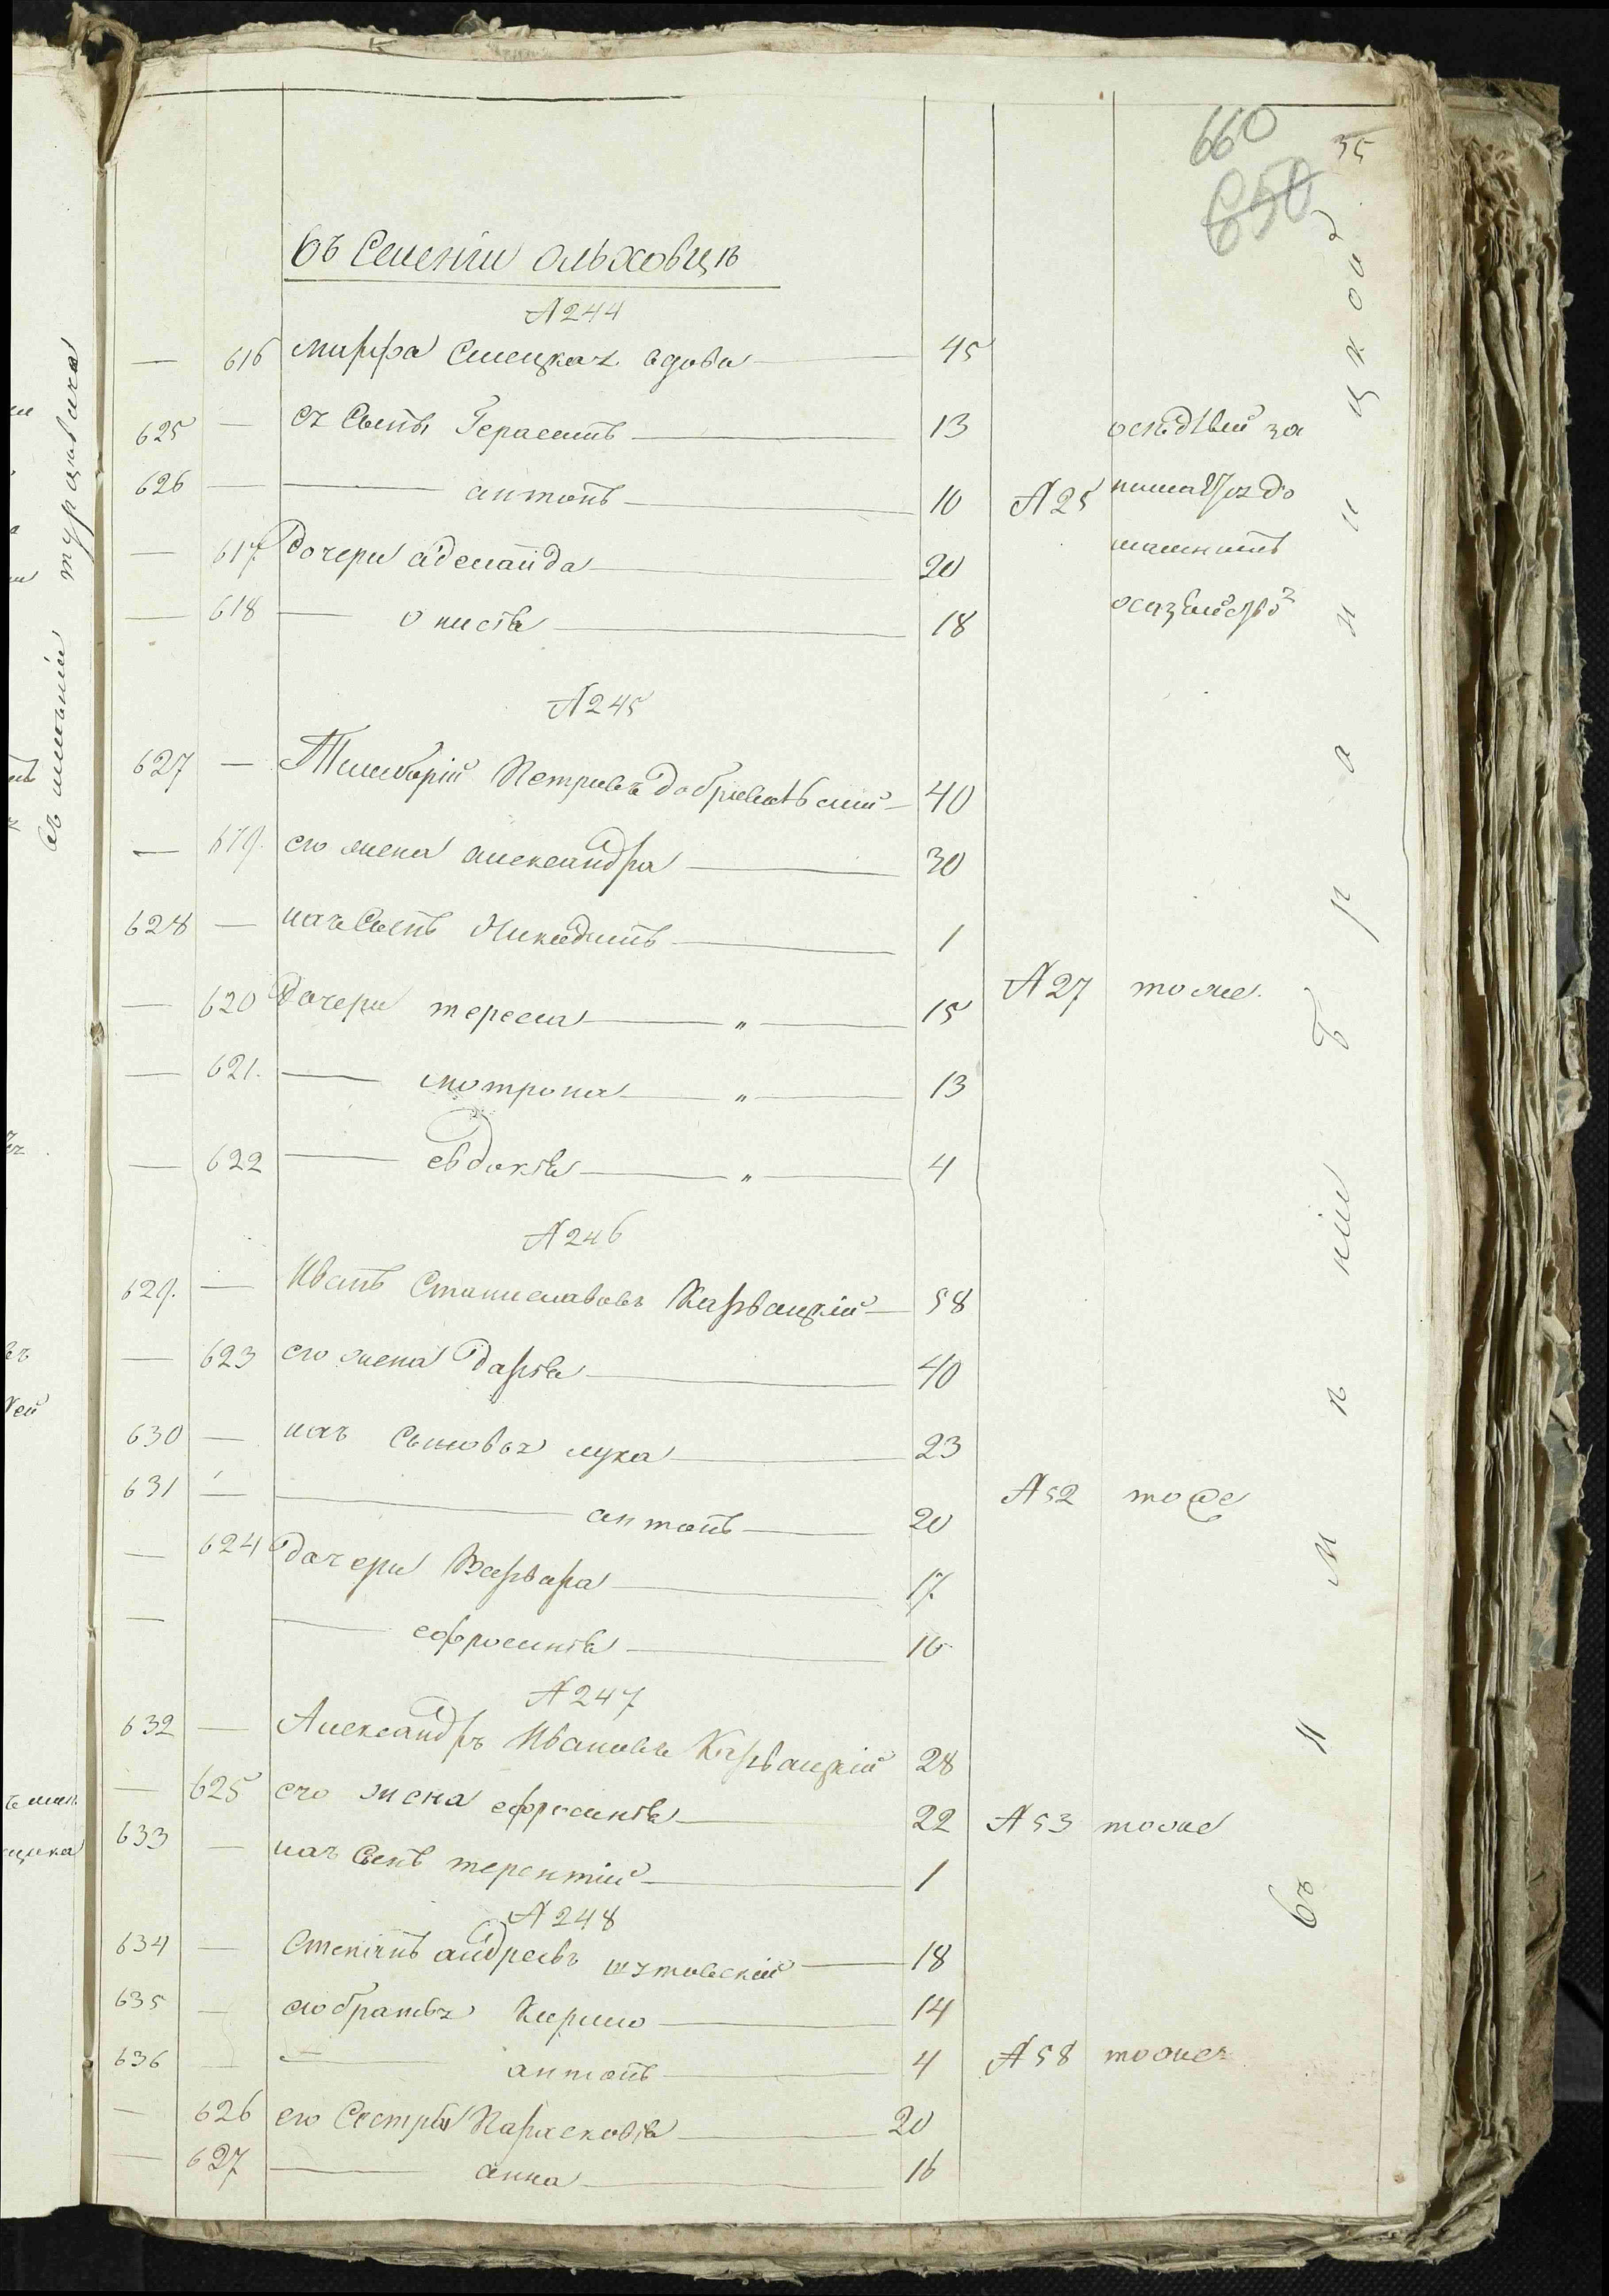 660
35
650
въ Селенiи Ольховцѣ
№ 244
— 616 Марфа вдова — 45
625 — ея Сынъ Герасимъ — 13
626 — — антонъ — 10 № 25
— 617 Дочери аделаида — 20
— 618 — — 18
осѣдлый за
нимается до
машнимъ
хозяйство
№ 245
627 — Тимофей Петровъ — 40
— 619. его жена александра — 30
628 — ихъ Сынъ Никодимъ — 1
— 620 Дочери тереса — " — 15 № 27 тоже.
— 621. — мотрона — " — 13
— 622 — евдокiя — " — 4
№ 246
629. — Иванъ Станиславовъ Карвацкiй — 58
— 623 его жена Дарiя — 40
630 — ихъ Сыновья лука — 23
631 — — антонъ — 20 № 52 тоже
— 624 дочери Варвара — 17
— — ефросинiя — 16
№ 247
632 — Александръ Ивановъ Карвацкiй 28
— 625 его жена ефросинiя — 22 № 53 тоже
633 — ихъ Сынъ терентiй — 1
№ 248
634 — Степанъ андреевъ — 18
635 — его братья Кирило — 14
636 — — антонъ — 4 № 58 тоже
— 626 его Сестры Парасковiя — 20
— 627 — анна — 16
въ имѣнiи
въ имѣнiи